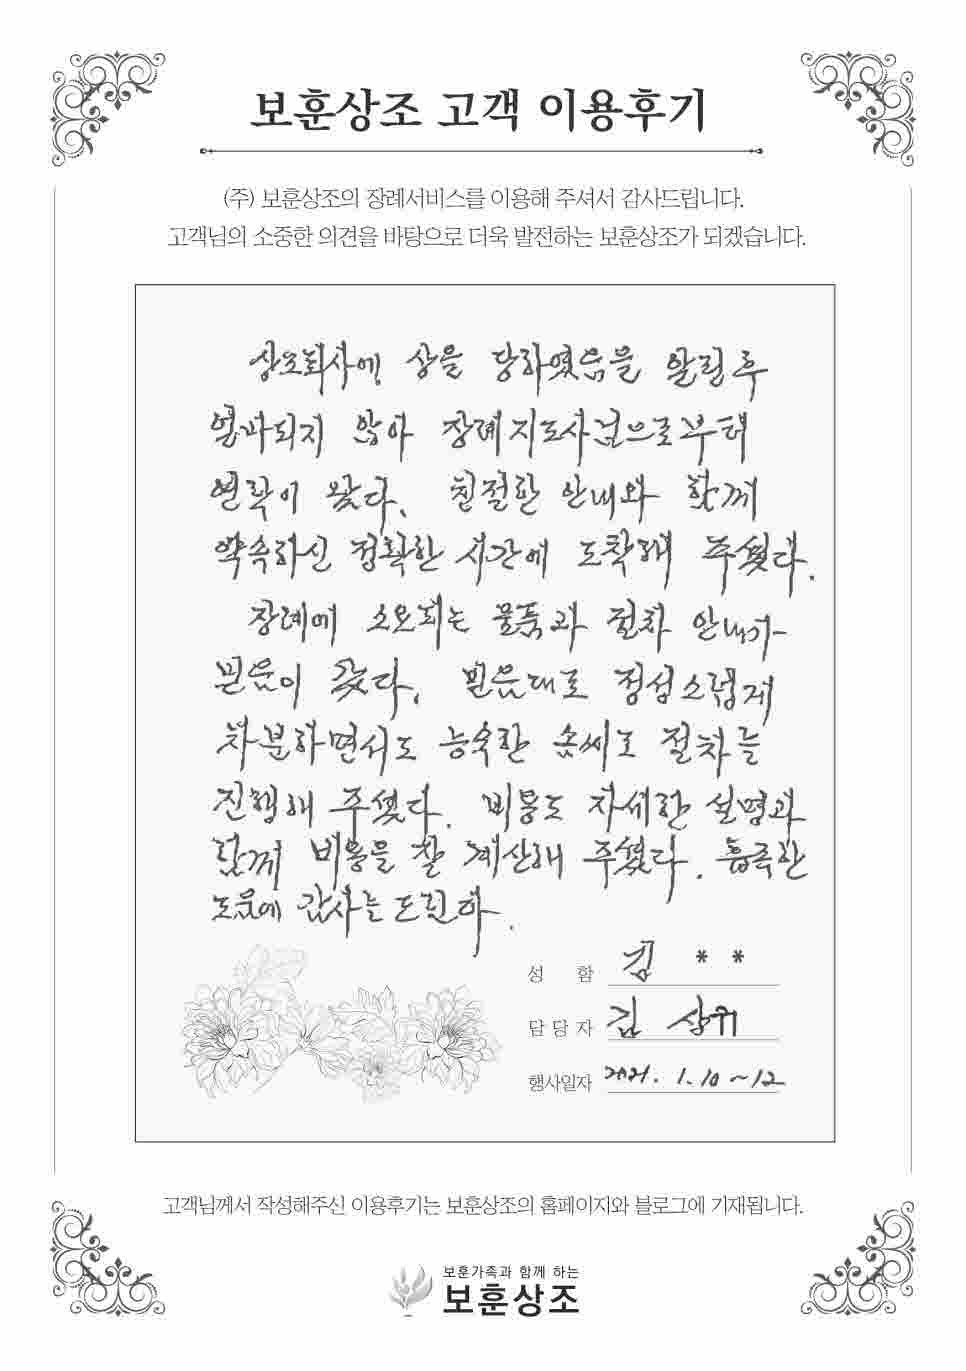 보훈상조 고객 이용후기
(주) 보훈상조의 장례서비스를 이용해 주셔서 감사드립니다.
고객님의 소중한 의견을 바탕으로 더욱 발전하는 보훈상조가 되겠습니다.
상조회사에 상을 당하였음을 알린 후
얼마되지 않아 장례지도사님으로부터
연락이 왔다. 친절한 안내와 함께
약속하신 정확한 시간에 도착해 주셨다.
장례에 소요되는 물품과 절차 안내가
믿음이 갔다. 믿음대로 정성스럽게
차분하면서도 능숙한 솜씨로 절차를
진행해 주셨다. 비용도 자세한 설명과
함께 비용을 잘 계산해 주셨다. 흡족한
도움에 감사를 드린다.
성 함 김 * *
담당자 김 상귀
행사일자 2021. 1. 10 ~ 12
고객님께서 작성해주신 이용후기는 보훈상조의 홈페이지와 블로그에 기재됩니다.
보훈가족과 함께 하는
보훈상조